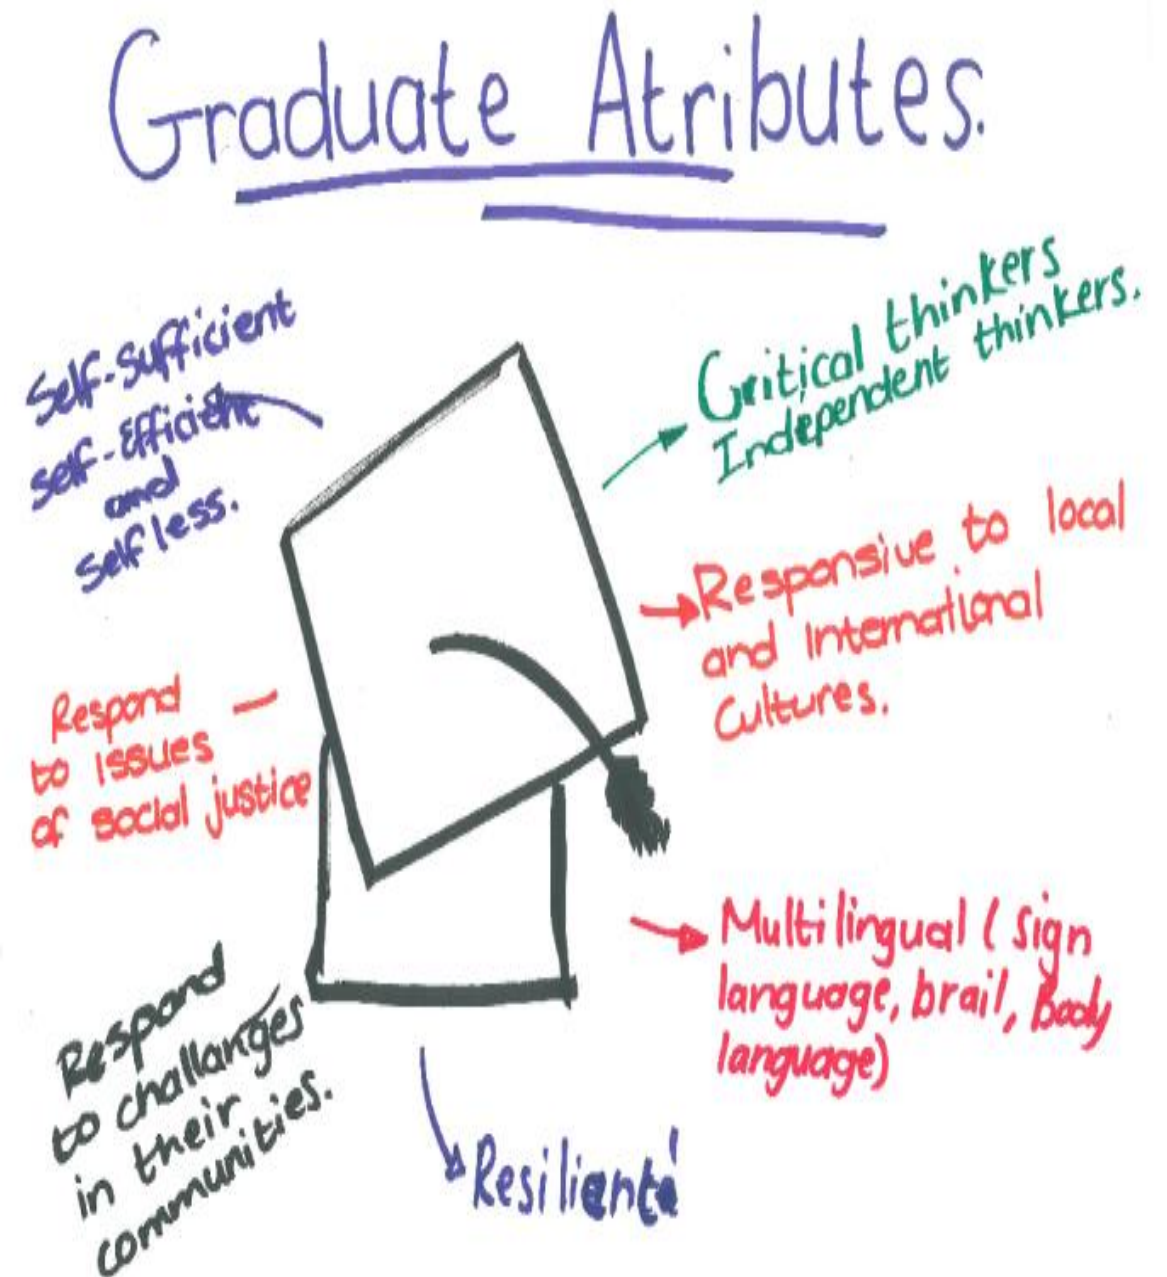 Graduate Atributes.
Self-Sufficient
self-Efficient
and
selfless.
Critical thinkers
Independent thinkers.
Responsive to local
and International
Cultures.
Respond
to issues
of social justice
Multilingual (sign
language, brail, Body
language)
Respond
to challanges
in their
communities.